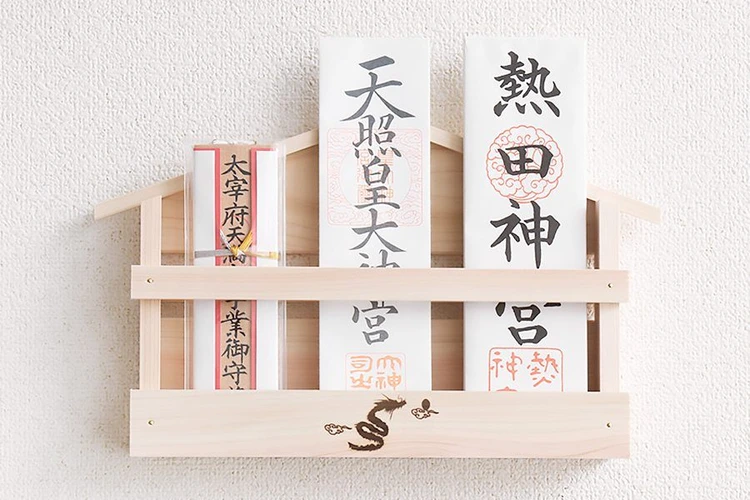 太宰府天満学業御守
天照皇大神宮
熱田神宮
熱
神